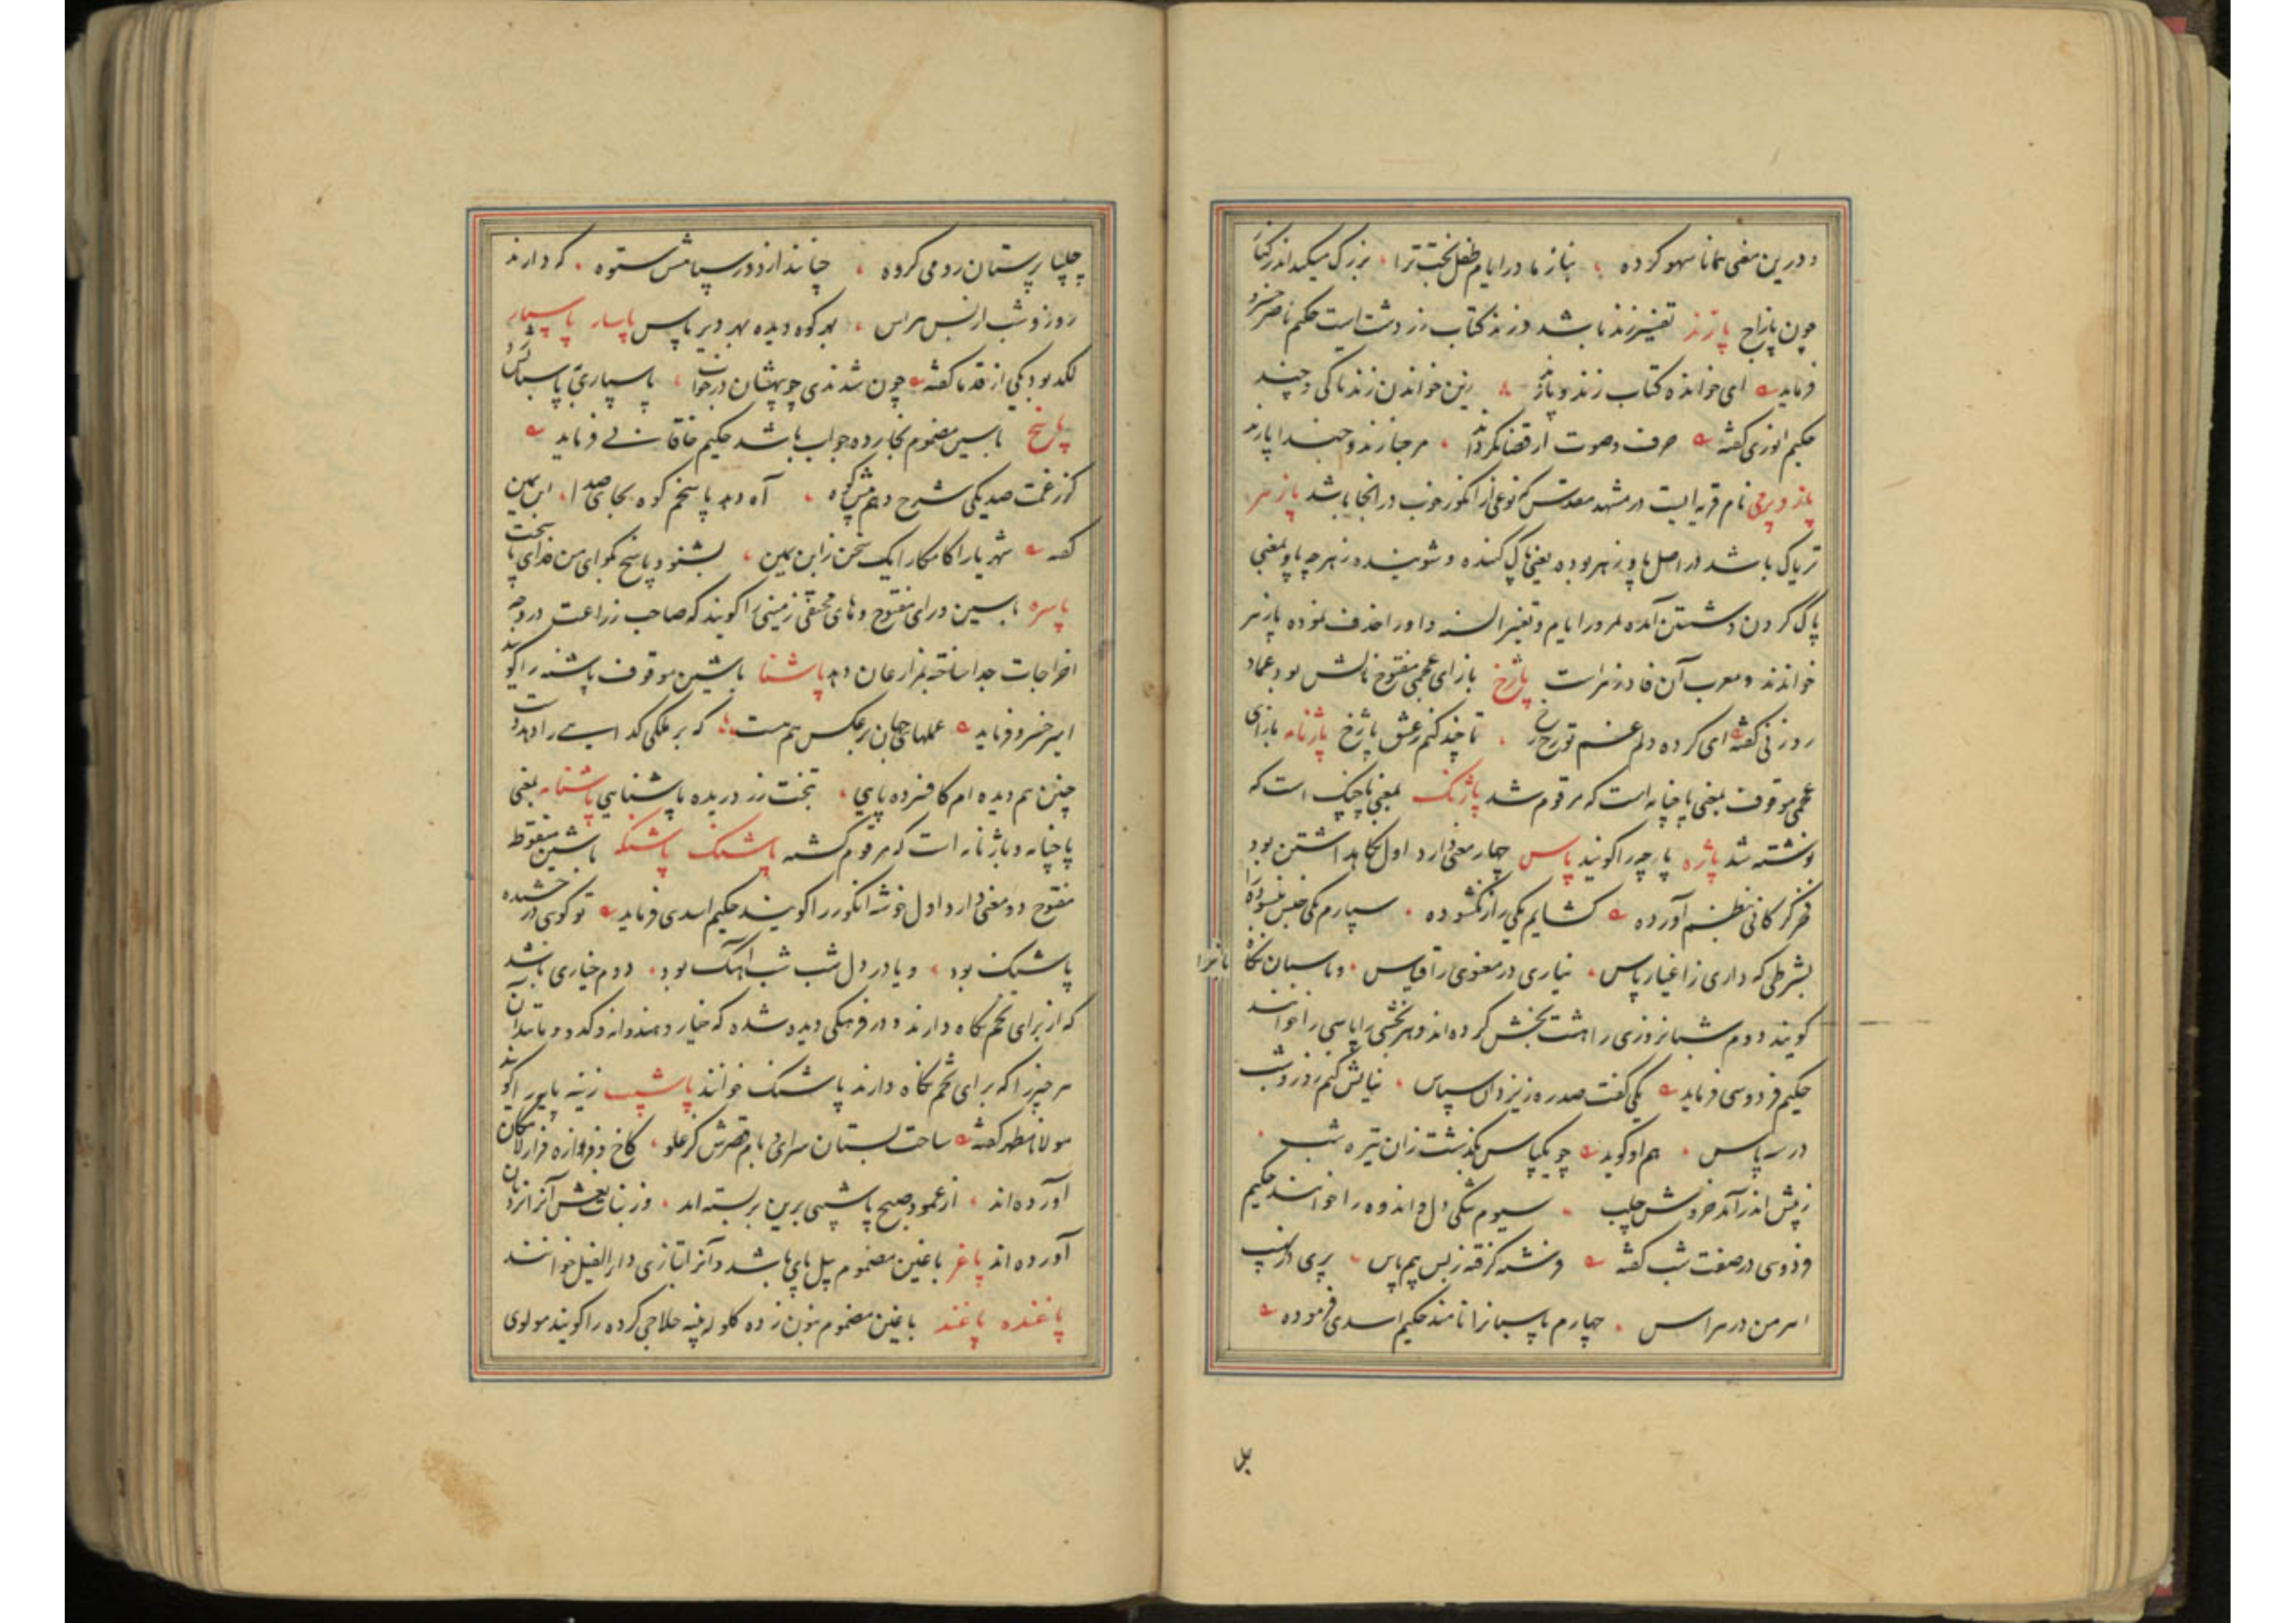 و درین معنی همانا سهو کرده بناز ما در ایام طفل بخت ترا بزرگ میکند اندر کنار
چون پازاج پازند تفسیر زند باشد و زند کتاب زردشت است حکیم ناصر خسرو
فرماید ای خوانده کتاب زند و پازند زین خواندن زند تا کی و چند
حکیم انوری گفته حرف و صوت ار قضا بگرداند مرحبا زند و حبذا پازند
نام قریه ایست در مشهد مقدس که نوعی از انگور خوب در انجا باشد پازهر
تریاک باشد در اصل پاو زهر بوده یعنی پاک کننده و شوینده زهر چه پاو بمعنی
پاک کردن و شستن آمده بمرور ایام و تغیر السنه واو را حذف نموده پازهر
خواندند و معرب آن فادزهر است پاژخ بازای عجمی مفتوح مالش بود عماد
روزنی گفته ای کرده دلم غم تو رخ رخ تا چند کنم ز عشق پاژخ پاژنامه بازای
عجمی موقوف بمعنی پاچنامه است که مرقوم شد پاژنگ بمعنی پاچنگ است که
نوشته شد پاژه پارچه را گویند پاس چهار معنی دارد اول نگاهداشتن بود
فخر گرکانی بنظم آورده گشایم یکی راز نگشوده سپارم یکی جنس نبسوده
بشرطی که داری ز اغیار پاس نیاری در معنوی را قیاس و پاسبان نگاه
بانرا
گویند دوم شبانروزی را هشت بخش کرده اند و هر بخشی را پاسی را خوانند
حکیم فردوسی فرماید یکی گفت صد ره ز یزدان سپاس نیایش کنم روز و شب
در سه پاس هم او گوید چو یکپاس بگذشت زان تیره شب
ز پیش اندر آمد خروش جلب سیوم تنگی دل و اندوه را خوانند حکیم
فردوسی در صفت شب گفته فرشته گرفته ز بس بیم پاس پری در نهیب
اهرمن در هراس چهارم پاسبانرا نامند حکیم اسدی فرموده
چلیپا پرستان رومی گروه چنانند از دور سپامش ستوه که دارند
روز و شب از بس هراس بهر کوه دیده بهر دیر پاس پاسار پاسپار
لگد بود یکی از قدما گفته چون شدندی چو بیهشان در خواب
پاسخ باسین مضموم بخا زده جواب باشد حکیم خاقانی فرماید
کز غمت صد یکی شرح دهم پیش کوه آه دهد پاسخم کوه بجای صدا ابن یمین
گفته شهریارا کامکارا یک سخن ز ابن یمین بشنو و پاسخ بگو ای من فدای پاسخت
پاسره باسین و رای مفتوح و های مختفی زمینی را گویند که صاحب زراعت در وجه
اخراجات جدا ساخته بمزارعان دهد پاشنا باشین موقوف پاشنه را گویند
امیر خسرو فرماید عملهای جهان بر عکس هم هست که بر ملکی گدا
چنین هم دیده ام کافسرده پایی بتخت زر دریده پاشنایی پاشنامه بمعنی
پاچنامه و پاژنامه است که مرقوم گشته پاشنگ پاشنگه باشین منقوط
مفتوح دو معنی دارد اول خوشه انگور را گویند حکیم اسدی فرماید تو گویی درخشنده
پاشنگ بود و یا در دل شب شب آهنگ بود دوم خیاری باشد
که از برای تخم نگاه دارند و در فرهنگی دیده شده که خیار و هندوانه و کدو و مانند آن
هر چیز را که برای تخم نگاه دارند پاشنگ خوانند پاشیب زینه پایه را گویند
مولانا مطهر گفته ساحت بستان سرای و بام قصرش کز علو کاخ و فروازه فراز لامکان
آورده اند از عمود صبح پاشیبی برین بر بسته اند وز بنات نعش آنرا نردبان
آورده اند پاغر باغین مضموم پیل پای باشد و آنرا بتازی دا الفیل خوانند
پاغنده پاغند باغین مضموم بنون زده گلوله پنبه حلاجی کرده را گویند مولوی